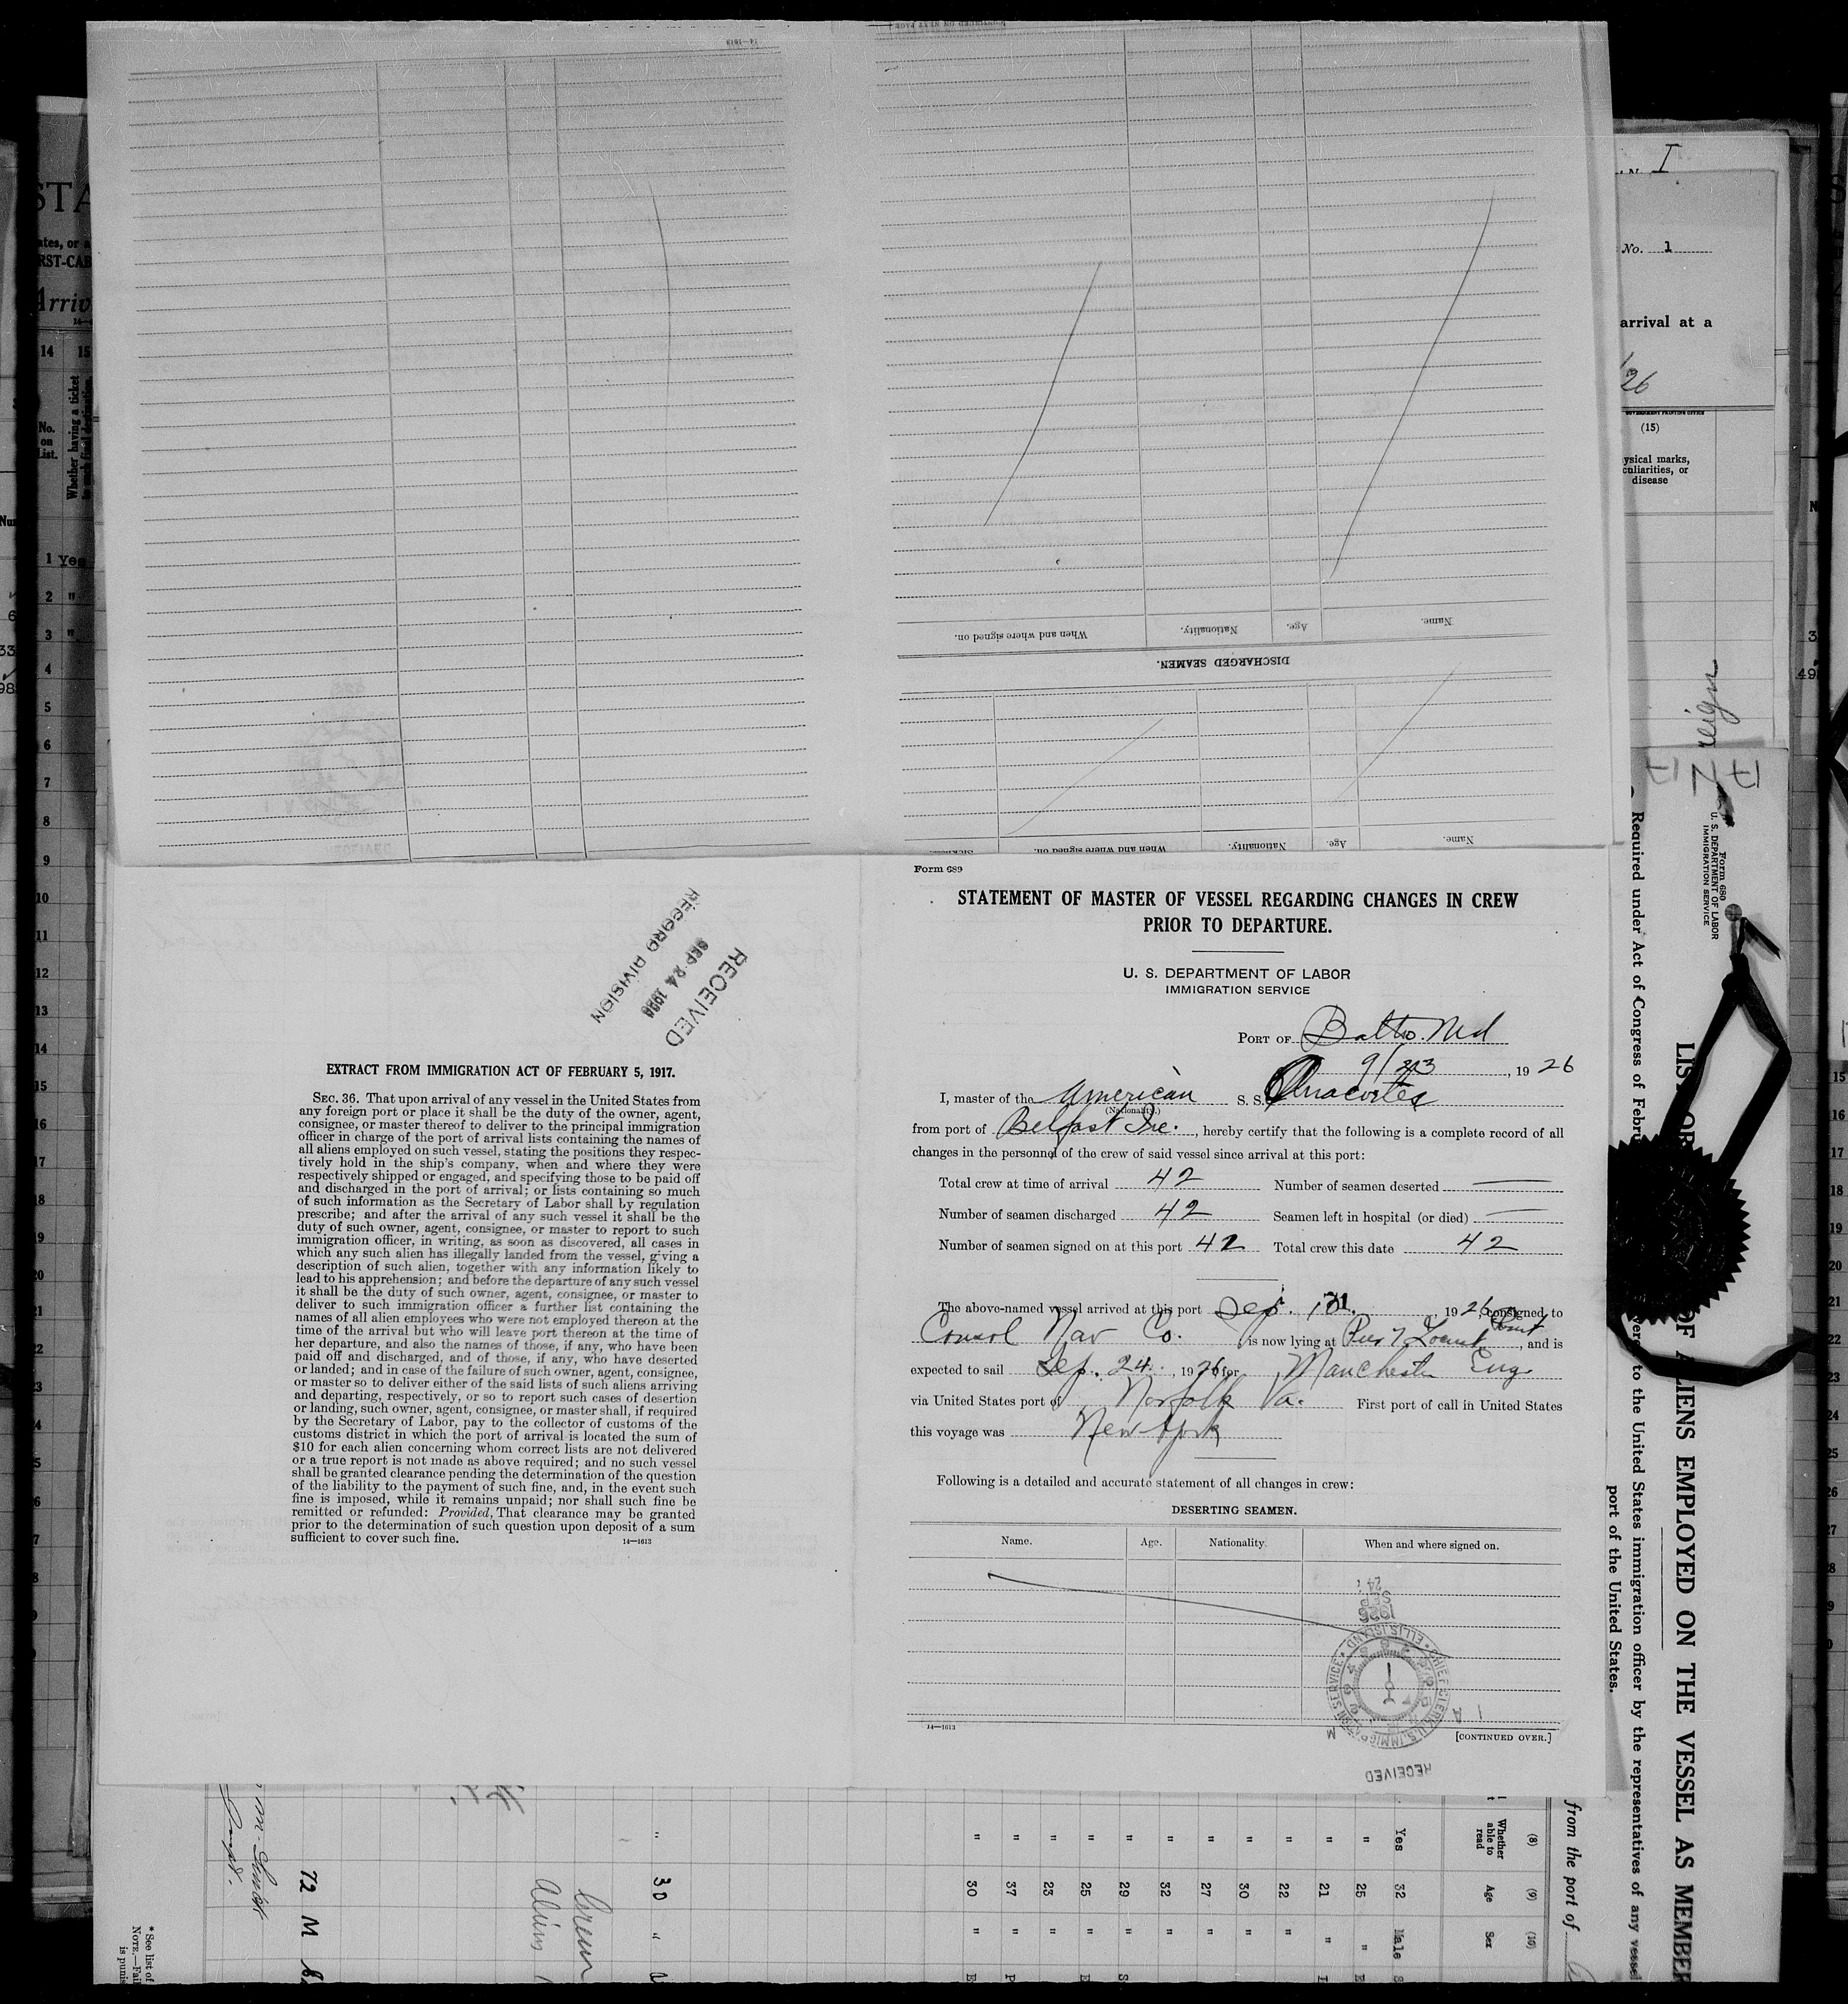 Form 689
STATEMENT OF MASTER OF VESSEL REGARDING CHANGES IN CREW
PRIOR TO DEPARTURE.
U. S. DEPARTMENT OF LABOR
IMMIGRATION SERVICE
PORT OF Balto. Md
9/23, 1926
I, master of the American S. S. Anacortes
(Nationality.)
from port of Belfast Ire., hereby certify that the following is a complete record of all
changes in the personnel of the crew of said vessel since arrival at this port:
Total crew at time of arrival 42 Number of seamen deserted —
Number of seamen discharged 42 Seamen left in hospital (or died) —
Number of seamen signed on at this port 42 Total crew this date 42
The above-named vessel arrived at this port Sep. , 1926, consigned to
Consol Nav Co. is now lying at Pier 7 Locust Point, and is
expected to sail Sep. 24, 1926 for Manchester Eng
via United States port of Norfolk Va. First port of call in United States
this voyage was New York
Following is a detailed and accurate statement of all changes in crew:
DESERTING SEAMEN.
Name. Age. Nationality. When and where signed on.
14—1613
[CONTINUED OVER.]
1926
SEP
24
CHIEF CLERK U.S. IMMIGRATION SERVICE • ELLIS ISLAND •
RECEIVED
RECEIVED
SEP 24 1926
RECORD DIVISION
EXTRACT FROM IMMIGRATION ACT OF FEBRUARY 5, 1917.
SEC. 36. That upon arrival of any vessel in the United States from
any foreign port or place it shall be the duty of the owner, agent,
consignee, or master thereof to deliver to the principal immigration
officer in charge of the port of arrival lists containing the names of
all aliens employed on such vessel, stating the positions they respec-
tively hold in the ship's company, when and where they were
respectively shipped or engaged, and specifying those to be paid off
and discharged in the port of arrival; or lists containing so much
of such information as the Secretary of Labor shall by regulation
prescribe; and after the arrival of any such vessel it shall be the
duty of such owner, agent, consignee, or master to report to such
immigration officer, in writing, as soon as discovered, all cases in
which any such alien has illegally landed from the vessel, giving a
description of such alien, together with any information likely to
lead to his apprehension; and before the departure of any such vessel
it shall be the duty of such owner, agent, consignee, or master to
deliver to such immigration officer a further list containing the
names of all alien employees who were not employed thereon at the
time of the arrival but who will leave port thereon at the time of
her departure, and also the names of those, if any, who have been
paid off and discharged, and of those, if any, who have deserted
or landed; and in case of the failure of such owner, agent, consignee,
or master so to deliver either of the said lists of such aliens arriving
and departing, respectively, or so to report such cases of desertion
or landing, such owner, agent, consignee, or master shall, if required
by the Secretary of Labor, pay to the collector of customs of the
customs district in which the port of arrival is located the sum of
$10 for each alien concerning whom correct lists are not delivered
or a true report is not made as above required; and no such vessel
shall be granted clearance pending the determination of the question
of the liability to the payment of such fine, and, in the event such
fine is imposed, while it remains unpaid; nor shall such fine be
remitted or refunded: Provided, That clearance may be granted
prior to the determination of such question upon deposit of a sum
sufficient to cover such fine.
14—1613
DISCHARGED SEAMEN.
Name. Age. Nationality. When and where signed on.
Name. Age. Nationality. When and where signed on.
No. 1
arrival at a
(15)
ysical marks,
culiarities, or
disease
Form 680
U. S. DEPARTMENT OF LABOR
IMMIGRATION SERVICE
OF ALIENS EMPLOYED ON THE VESSEL AS MEMBER
Required under Act of Congress of Febru
to the United States immigration officer by the representatives of any vessel
port of the United States.
from the port of
(8) (9) (10)
Whether able to read Age Sex
Yes 32 Male
" 25 "
" 21 "
" 22 "
" 30
" 27
" 32
" 29
" 25
" 23 "
" 37 "
" 30 "
" 30 "
72 M
*See list of
NOTE.—Fail
is punis
No. on List.
Whether having a ticket
14 15
1 Yes
2 "
3 "